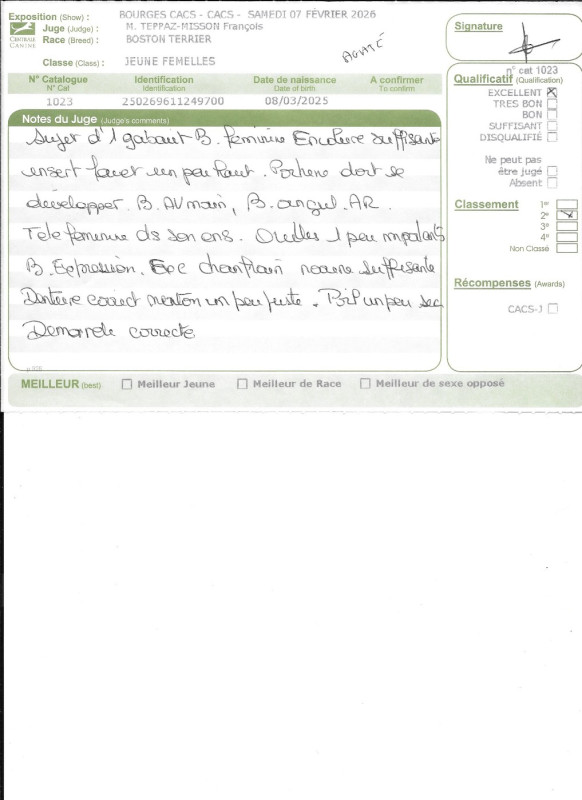 Exposition (Show) : BOURGES CACS - CACS - SAMEDI 07 FÉVRIER 2026
Juge (Judge) : M. TEPPAZ-MISSON François
Race (Breed) : BOSTON TERRIER
Classe (Class) : JEUNE FEMELLES
CENTRALE CANINE
Signature
N° Catalogue Identification Date de naissance A confirmer
N° Cat Identification Date of birth To confirm
1023 250269611249700 08/03/2025
n° cat 1023
Qualificatif (Qualification)
EXCELLENT
TRES BON
BON
SUFFISANT
DISQUALIFIÉ
Ne peut pas
être jugé
Absent
Classement 1er
2e
3e
4e
Non Classé
Récompenses (Awards)
CACS-J
Notes du Juge (Judge's comments)
Sujet d'1 gabarit B. féminine Encolure suffisante
un peu haut. Poitrine doit se
développer. B. AV main, B. angul. AR.
Tete feminine ds son ens. Oreilles 1 peu
B. Expression. chanfrein suffisante
Denture correct menton un peu juste. Poil un peu sec
Demarche correcte
MEILLEUR (best) Meilleur Jeune Meilleur de Race Meilleur de sexe opposé